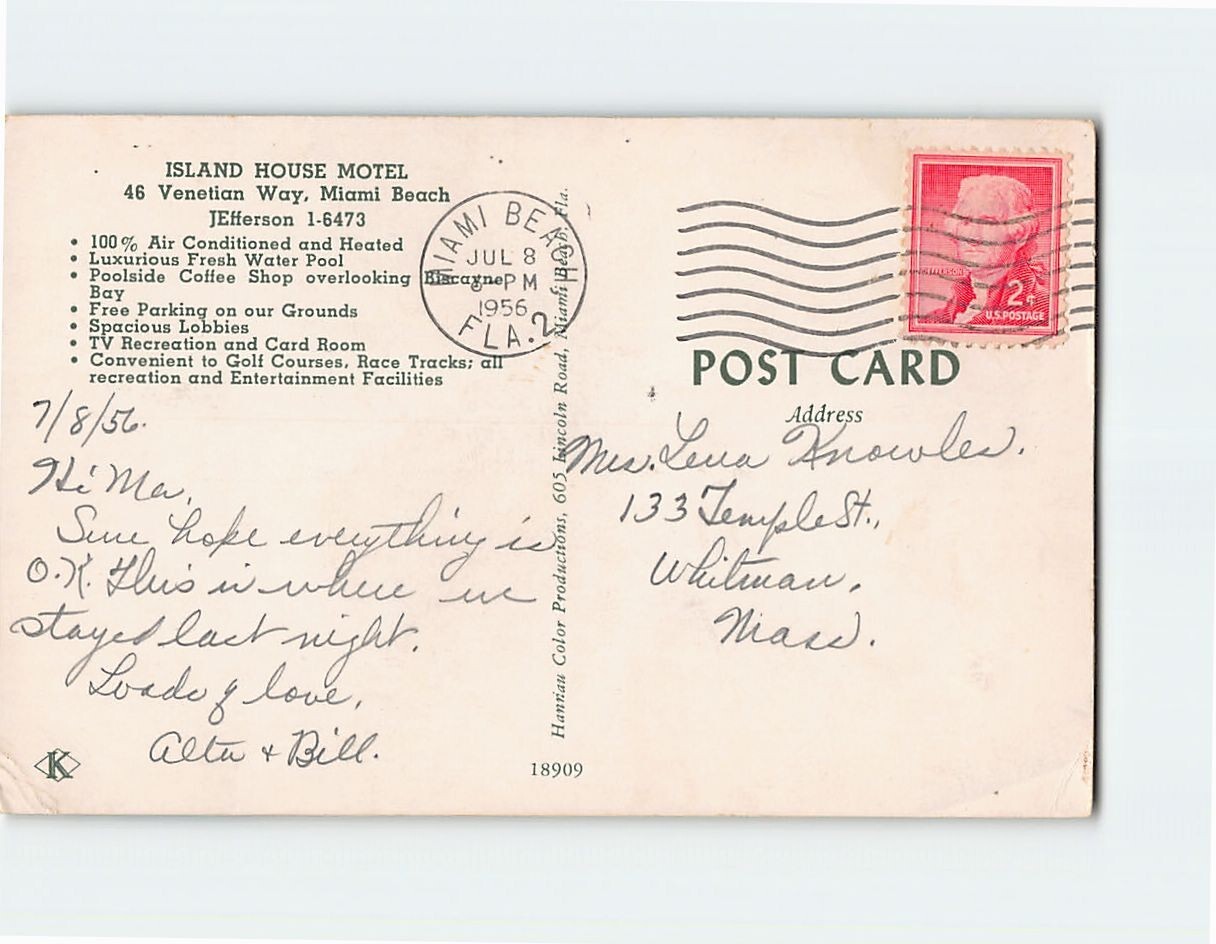 ISLAND HOUSE MOTEL
46 Venetian Way, Miami Beach
JEfferson 1-6473
• 100% Air Conditioned and Heated
• Luxurious Fresh Water Pool
• Poolside Coffee Shop overlooking Biscayne
Bay
• Free Parking on our Grounds
• Spacious Lobbies
• TV Recreation and Card Room
• Convenient to Golf Courses, Race Tracks; all
recreation and Entertainment Facilities
7/8/56.
Hi Ma,
Sure hope everything is
O.K. This is where we
stayed last night.
Loads of love,
Alta + Bill.
K
MIAMI BEACH
JUL 8
PM
1956
FLA. 2
Hannau Color Productions, 605 Lincoln Road, Miami Beach, Fla.
18909
JEFFERSON
2¢
U.S. POSTAGE
POST CARD
Address
Mrs. Lena Knowles.
133 Temple St.,
Whitman,
Mass.